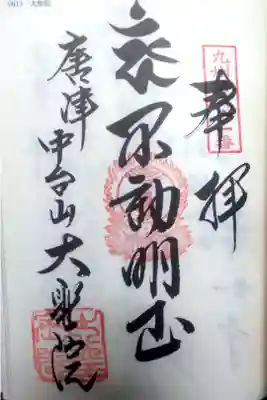 (61) 大聖院
九州
奉拝
不動明王
唐津
中台山 大聖院